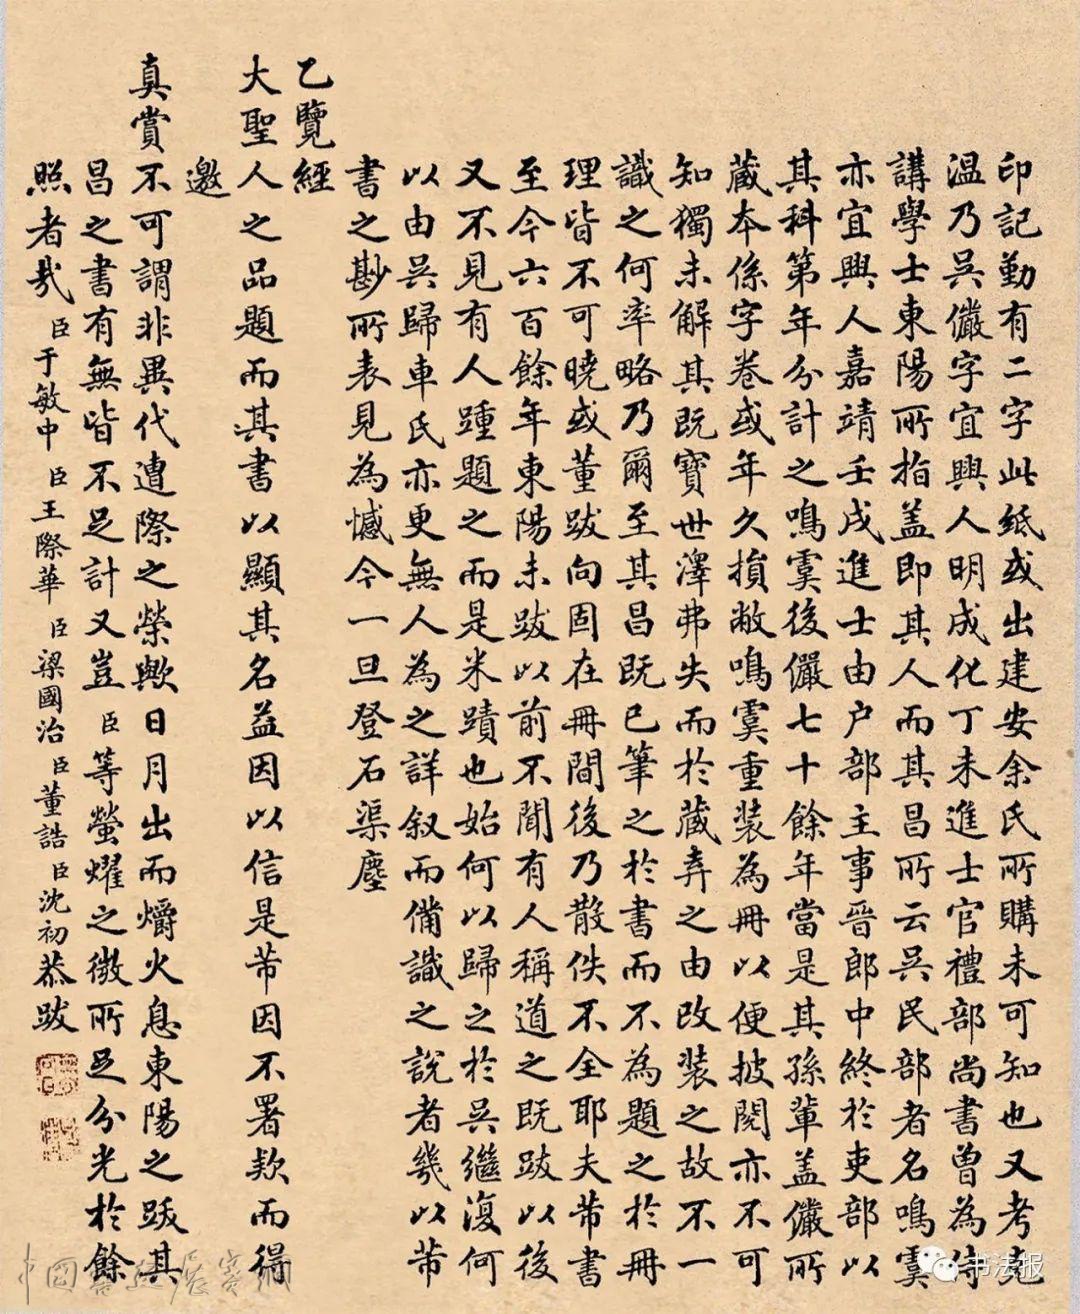 印記勤有二字此紙或出建安余氏所購未可知也又考克
溫乃吳儼字宜興人明成化丁未進士官禮部尚書曾為侍
講學士東陽所指盖即其人而其昌所云吳民部者名鳴虞
亦宜興人嘉靖壬戌進士由户部主事晉郎中終於吏部以
其科第年分計之鳴虞後儼七十餘年當是其孫輩盖儼所
藏本係字卷或年久損敝鳴虞重装為冊以便披閱亦不可
知獨未解其既寶世澤弗失而於藏弆之由改装之故不一
識之何率略乃爾至其昌既已筆之於書而不為題之於冊
理皆不可曉或董跋向固在冊間後乃散佚不全耶夫芾書
至今六百餘年東陽未跋以前不聞有人稱道之既跋以後
又不見有人踵題之而是米蹟也始何以歸之於吳繼復何
以由吳歸車氏亦更無人為之詳叙而備識之說者幾以芾
書之尠所表見為憾今一旦登石渠塵
乙覽經
大聖人之品題而其書以顯其名益因以信是芾因不署欵而得
邀
真賞不可謂非異代遭際之榮歟日月出而爝火息東陽之跋其
昌之書有無皆不足計又豈臣等螢燿之微所足分光於餘
照者哉臣于敏中臣王際華臣梁國治臣董誥臣沈初恭跋
书法报